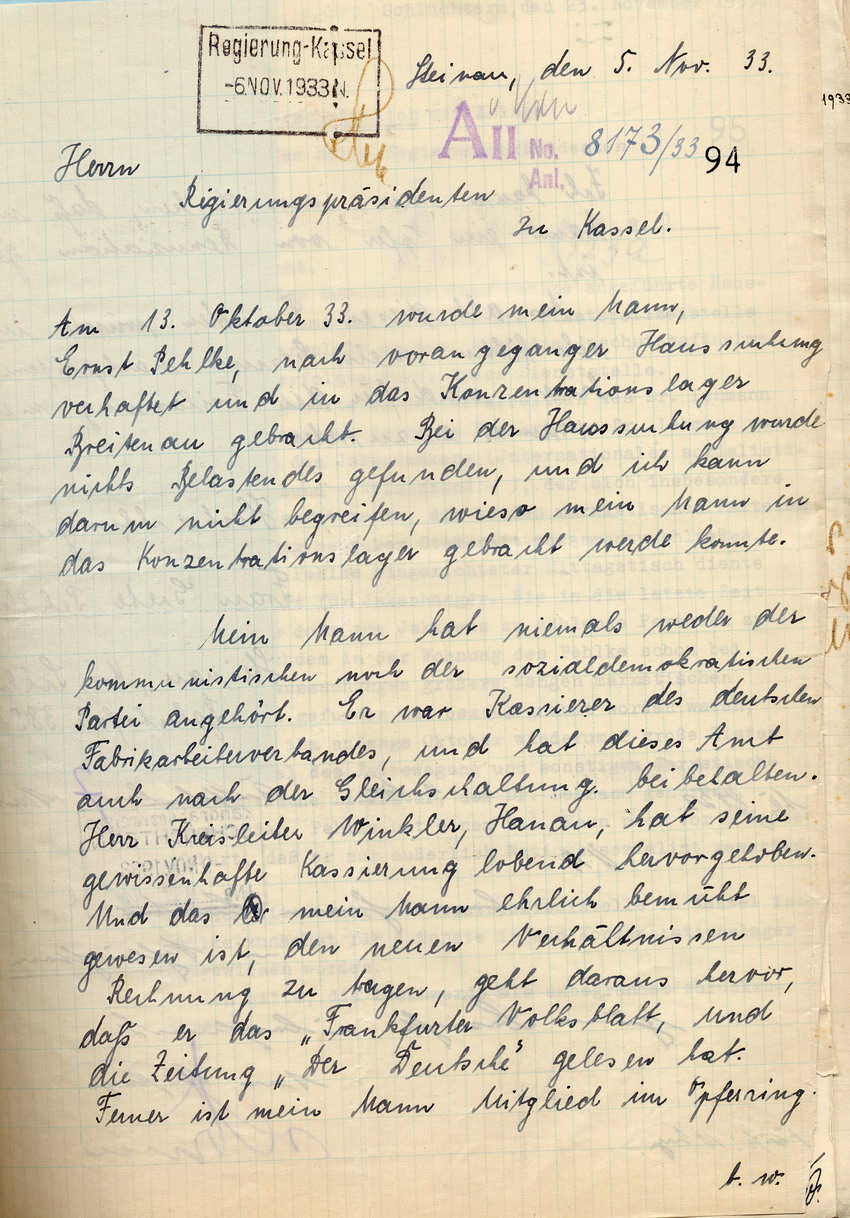 Regierung-Kassel
-6.NOV.1933 N.
Steinau, den 5. Nov. 33.
1933
AII No. 8173/33
94
Anl.
Herrn
Regierungspräsidenten
zu Kassel.
Am 13. Oktober 33. wurde mein Mann,
Ernst Pehlke, nach vorangeganger Haussuchung
verhaftet und in das Konzentrationslager
Breitenau gebracht. Bei der Haussuchung wurde
nichts Belastendes gefunden, und ich kann
darum nicht begreifen, wieso mein Mann in
das Konzentrationslager gebracht werde konnte.
Mein Mann hat niemals weder der
kommunistischen noch der sozialdemokratischen
Partei angehört. Er war Kassierer des deutschen
Fabrikarbeiterverbandes, und hat dieses Amt
auch nach der Gleichschaltung beibehalten.
Herr Kreisleiter Winkler, Hanau, hat seine
gewissenhafte Kassierung lobend hervorgehoben.
Und das mein Mann ehrlich bemüht
gewesen ist, den neuen Verhältnissen
Rechnung zu tragen, geht daraus hervor,
daß er das „Frankfurter Volksblatt, und
die Zeitung „Der Deutsche" gelesen hat.
Ferner ist mein Mann Mitglied im Opferring.
b. w.